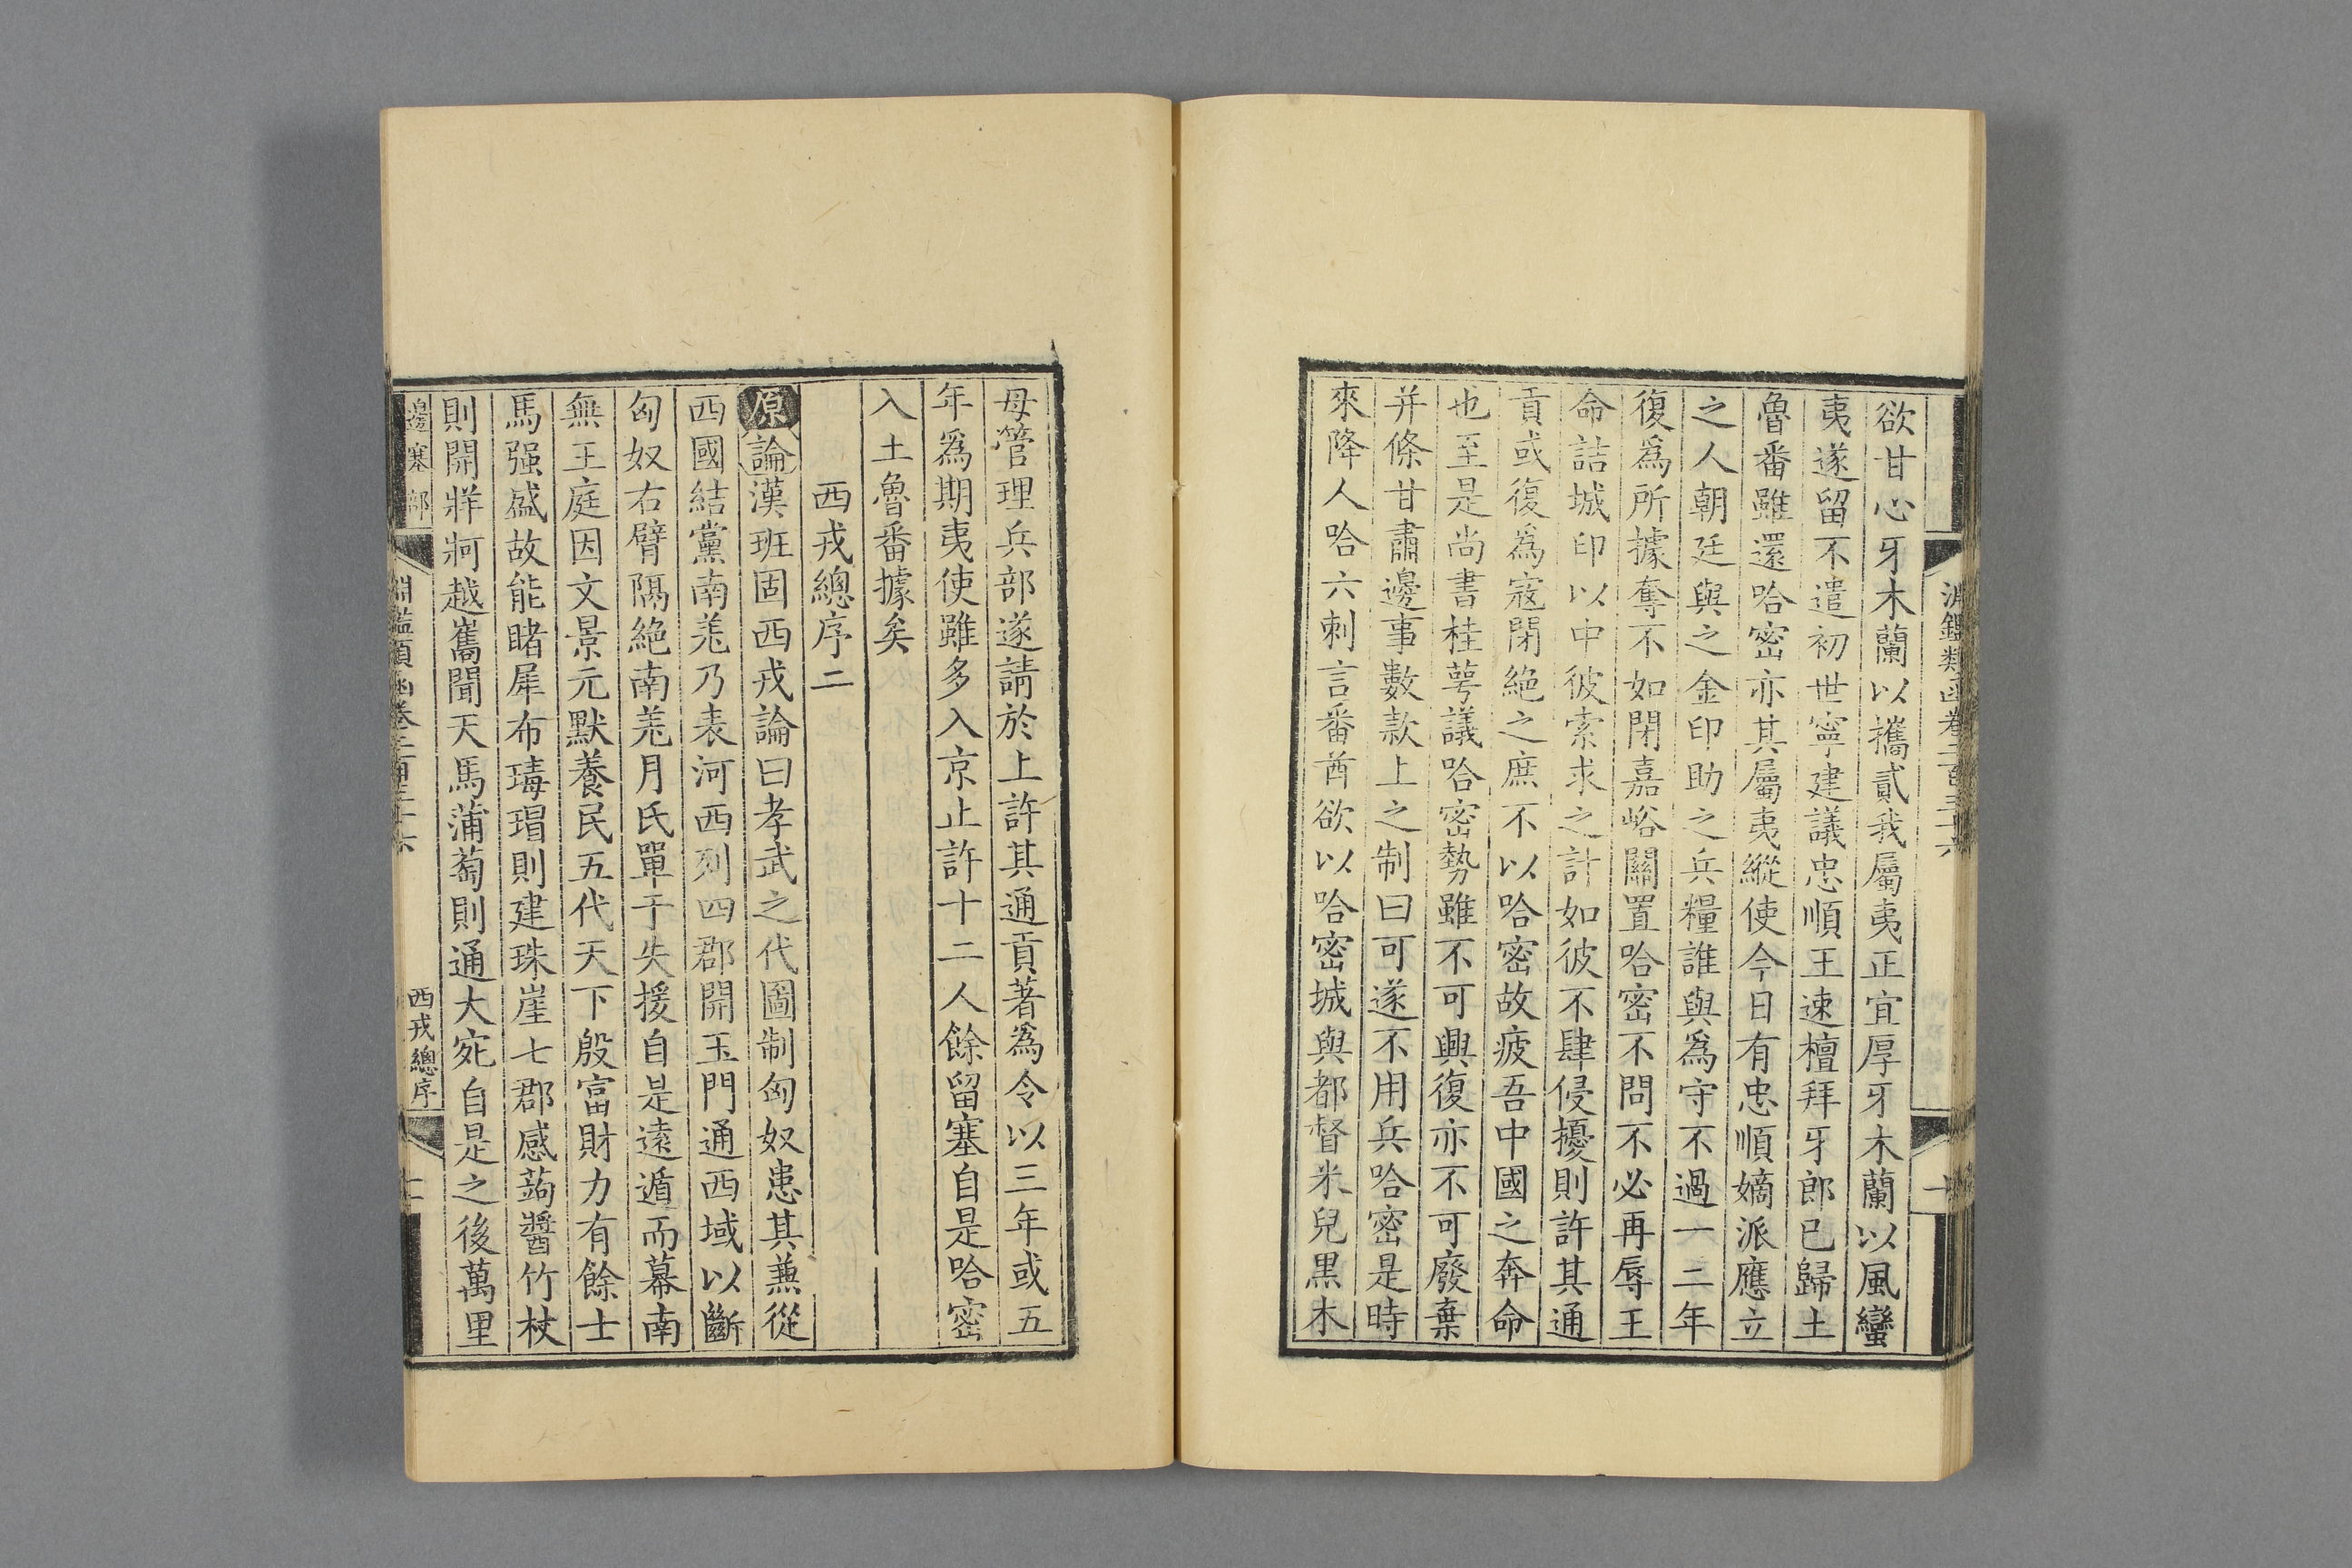 欲甘心牙木蘭以攜貳我屬夷正宜厚牙木蘭以風蠻
夷遂留不遣初世寧建議忠順王速檀拜牙郎已歸土
魯番雖還哈密亦其屬夷縱使今日有忠順嫡派應立
之人朝廷與之金印助之兵糧誰與爲守不過一二年
復爲所據奪不如閉嘉峪關置哈密不問不必再辱王
命詰城印以中彼索求之計如彼不肆侵擾則許其通
貢或復爲寇閉絶之庶不以哈密故疲吾中國之奔命
也至是尚書桂萼議哈密勢雖不可興復亦不可廢棄
并條甘肅邊事數款上之制曰可遂不用兵哈密是時
來降人哈六剌言番酋欲以哈密城與都督米兒黑木
母管理兵部遂請於上許其通貢著爲令以三年或五
年爲期夷使雖多入京止許十二人餘留塞自是哈密
入土魯番據矣
西戎總序二
原論漢班固西戎論曰孝武之代圖制匈奴患其兼從
西國結黨南羌乃表河西列四郡開玉門通西域以斷
匈奴右臂隔絶南羌月氏單于失援自是遠遁而幕南
無王庭因文景元默養民五代天下殷富財力有餘士
馬强盛故能睹犀布瑇瑁則建珠崖七郡感蒟醬竹杖
則開牂牁越嶲聞天馬蒲萄則通大宛自是之後萬里
邊塞部
淵鑑類函卷二百三十六
西戎總序